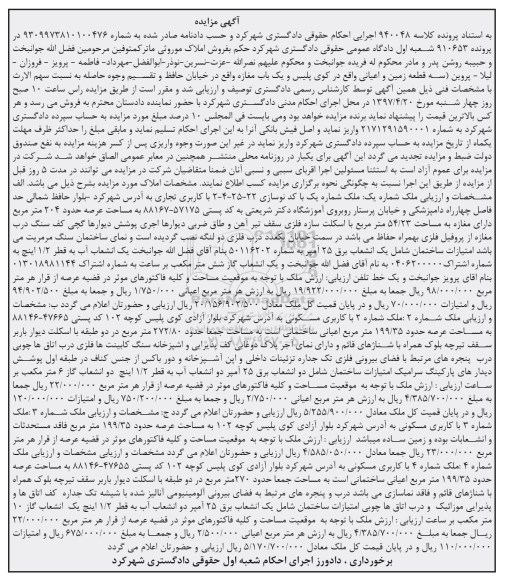 آگهی مزایده
به استناد پرونده کلاسه ۹۴۰۰۴۸ اجرایی احکام حقوقی دادگستری شهرکرد و حسب دادنامه صادر شده به شماره ۹۳۰۹۹۷۳۸۱۰۱۰۰۴۷۶ در
پرونده ۹۱۰۶۵۳ شعبه اول دادگاه عمومی حقوقی دادگستری شهرکرد حکم بفروش املاک موروثی ماترک متوفین مرحومین فضل الله جوانبخت
و حبیبه روشن پدر و مادر محکوم له فریده جوانبخت و محکوم علیهم نصرالله -عزت-نسرین-نوذر-ابوالفضل-مهرداد- فاطمه - پرویز - فروزان -
لیلا - پروین (سه قطعه زمین و اعیانی واقع در کوی پلیس و یک باب مغازه واقع در خیابان حافظ و تقسیم وجوه حاصله به نسبت سهم الارث
با مشخصات فنی ذیل همین آگهی توسط کارشناس رسمی دادگستری توصیف و ارزیابی شد و مقرر است از طریق مزایده راس ساعت ۱۰ صبح
روز چهار شنبه مورخ ۱۳۹۷/۴/۲۰ در محل اجرای احکام مدنی دادگستری شهرکرد با حضور نماینده دادستان محترم به فروش می رسد و هر
کس بالاترین قیمت را پیشنهاد نماید برنده مزایده خواهد بود ومی بایست فی المجلس ۱۰ درصد مبلغ مورد مزایده به حساب سپرده دادگستری
شهرکرد به شماره ۲۱۷۱۲۹۱۵۹۰۰۰۱ واریز نماید و اصل فیش بانکی آنرا به این اجرای احکام تسلیم نماید و مابقی مبلغ را حداکثر ظرف مهلت
یکماه از تاریخ مزایده به حساب سپرده دادگستری شهرکرد واریز نماید در غیر این صورت وجوه واریزی پس از کسر هزینه مزایده به نفع صندوق
دولت ضبط و مزایده تجدید می گردد این آگهی برای یکبار در روزنامه محلی منتشر همچنین در معابر عمومی الصاق خواهد شد شرکت در
مزایده برای عموم آزاد است به استثناء مسئولین اجرا اقربای سببی و نسبی آنان ضمنا متقاضیان شرکت در مزایده می توانند در مدت ۵ روز قبل
از مزایده از طریق این اجرا نسبت به چگونگی نحوه برگزاری مزایده کسب اطلاع نمایند. مشخصات املاک مورد مزایده بشرح ذیل می باشد. الف
مشخصات و ارزیابی ملک شماره یک: ملک شماره یک با کد نوسازی ۲۲-۲۵-۴-۲ با کاربری تجاری به آدرس شهرکرد -بلوار حافظ شمالی حد
فاصل چهارراه دامپزشکی و خیابان پرستار روبروی آموزشگاه دکتر شریعتی به کد پستی ۵۷۱۷۵-۸۸۱۶۷ به مساحت عرصه حدود ۲۰۴ متر مربع
دارای مغازه به مساحت ۵۴/۲۳ متر مربع با اسکلت سازه فلزی سقف تیر آهن و طاق ضربی دیوارها اجری پوشش دیوارها گچی کف سنگ درب
مغازه از پروفیل فلزی بهمراه حفاظ می باشد در سمت خیابان یکعدد درب فلزی دو لنگه نصب گردیده است و نمای ساختمان سنگ مرمریت می
باشد امتیازات ساختمان شامل یک انشعاب برق ۲۵ آمپر به شماره ۵۰۱۱۶۲۰۲ بنام آقای فضل الله جوانبخت یک انشعاب آب به قطر ۱/۲ اینچ به
شماره اشتراک ۰۴۰۶۲۰۰۰۰۰ به نام آقای فضل الله جوانبخت و یک انشعاب گاز شش متر مکعب بر ساعت به شماره اشتراک ۰۱۳۰۱۸۹۸۱۱۴۴
بنام اقای پرویز جوانبخت و یک خط تلفن ارزیابی: ارزش ملک با توجه به موقعیت مساحت و کلیه فاکتورهای موثر در قضیه عرصه از قرار هر متر
مربع ۹۸/۰۰۰/۰۰۰ ریال جمعا به مبلغ ۱۹/۹۹۲/۰۰۰/۰۰۰ ریال به ارزش هر متر مربع اعیانی ۱/۷۵۰/۰۰۰ ریال و جمعا به مبلغ ۹۴/۹۰۲/۵۰۰
ریال و امتیازات ۷۰/۰۰۰/۰۰۰ ریال و در پایان قیمت کل ملک معادل ۲۰/۱۵۶/۹۰۲/۵۰۰ ریال ارزیابی و حضورتان اعلام می گردد ب: مشخصات
و ارزیابی ملک شماره ۲ :ملک شماره ۲ با کاربری مسکونی به آدرس شهرکرد بلوار آزادی کوی پلیس کوچه ۱۰۲ کد پستی ۴۷۶۶۵-۸۸۱۴۶
به مساحت عرصه حدود ۱۹۹/۳۵ متر مربع اعیانی ساختمانی است به مساحت جمعا حدود ۲۷۲/۸۰ متر مربع در دو طبقه با اسکلت دیوار باربر
سقف تیرچه بلوک همراه با شناژهای قائم و دارای نمای آجر پلاک دوغابی کف پذیرایی و اشپزخانه سنگ کابینت ها فلزی درب اتاق ها چوبی
درب پنجره های مرتبط با فضای بیرونی فلزی تک جداره تزئینات داخلی و این آشپزخانه و دور باکس از جنس کناف در طبقه اول پوشش
دیدار های پارکینگ سرامیک امتیازات ساختمان شامل دو انشعاب برق ۲۵ آمپر دو انشعاب آب به قطر ۱/۲ اینچ دو انشعاب گاز ۶ متر مکعب بر
ساعت ارزیابی : ارزش ملک با توجه به موقعیت مساحت و کلیه فاکتورهای موثر در قضیه عرصه از قرار هر متر مربع ۲۲/۰۰۰/۰۰۰ ریال جمعا
به مبلغ ۴/۳۸۵/۷۰۰/۰۰۰ ریال به ارزش هر متر مربع اعیانی ۲/۷۵۰/۰۰۰ ریال و جمعا به مبلغ ۷۵۰/۲۰۰/۰۰۰ ریال و امتیازات ۱۲۰/۰۰۰/۰۰۰
ریال و در پایان قیمت کل ملک معادل ۵/۲۵۵/۹۰۰/۰۰۰ ریال ارزیابی و حضورتان اعلام می گردد ج: مشخصات و ارزیابی ملک شماره ۳ :ملک
شماره ۳ با کاربری مسکونی به آدرس شهرکرد بلوار آزادی کوی پلیس کوچه ۱۰۲ به مساحت عرصه حدود ۱۹۹/۳۵ متر مربع فاقد مستحدثات
و انشعابات بوده و زمین ساده میباشد ارزیابی : ارزش ملک با توجه به موقعیت مساحت و کلیه فاکتورهای موثر در قضیه عرصه از قرار هر متر
مربع ۲۳/۰۰۰/۰۰۰ ریال جمعا معادل ۴/۵۸۵/۰۵۰/۰۰۰ ریال ارزیابی و حضورتان اعلام می گردد مشخصات و ارزیابی مشخصات و ارزیابی ملک
شماره ۴ :ملک شماره ۴ با کاربری مسکونی به آدرس شهرکرد بلوار آزادی کوی پلیس کوچه ۱۰۲ کد پستی ۴۷۶۵۵-۸۸۱۴۶ به مساحت عرصه
حدود ۱۹۹/۳۵ متر مربع اعیانی ساختمانی است به مساحت جمعا حدود ۲۷۰متر مربع در دو طبقه با اسکلت دیوار باربر سقف تیرچه بلوک همراه
با شناژهای قائم و فاقد نماسازی می باشد درب و پنجره های مرتبط به فضای بیرونی آلومینیومی آنالیز شده با شیشه تک جداره کف اتاق ها و
پذیرایی موزائیک و درب اتاق ها چوبی امتیازات ساختمان شامل یک انشعاب برق ۲۵ آمپر دو انشعاب آب به قطر ۱/۲ اینچ یک انشعاب گاز ۱۰
متر مکعب بر ساعت ارزیابی : ارزش ملک با توجه به موقعیت مساحت و کلیه فاکتورهای موثر در قضیه عرصه از قرار هر متر مربع ۲۲/۰۰۰/۰۰۰
ریال جمعا به مبلغ ۴/۳۸۵/۷۰۰/۰۰۰ ریال به ارزش هر متر مربع اعیانی ۲/۵۰۰/۰۰۰ ریال و جمعا به مبلغ ۶۷۵/۰۰۰/۰۰۰ ریال و امتیازات
۱۱۰/۰۰۰/۰۰۰ ریال و در پایان قیمت کل ملک معادل ۵/۱۷۰/۷۰۰/۰۰۰ ریال ارزیابی و حضورتان اعلام می گردد
برخورداری ، دادورز اجرای احکام شعبه اول حقوقی دادگستری شهرکرد